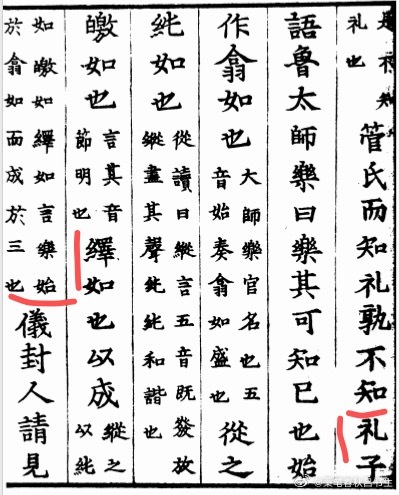 是不知礼也管氏而知礼孰不知礼子
語魯太師樂曰樂其可知已也始
作翕如也大師樂官名也五音始奏翕如盛也從之
純如也從讀曰縱言五音既發放縱盡其聲純純和諧也
皦如也言其音節明也繹如也以成縱之以純
如皦如繹如言樂始於翕如而成於三也儀封人請見